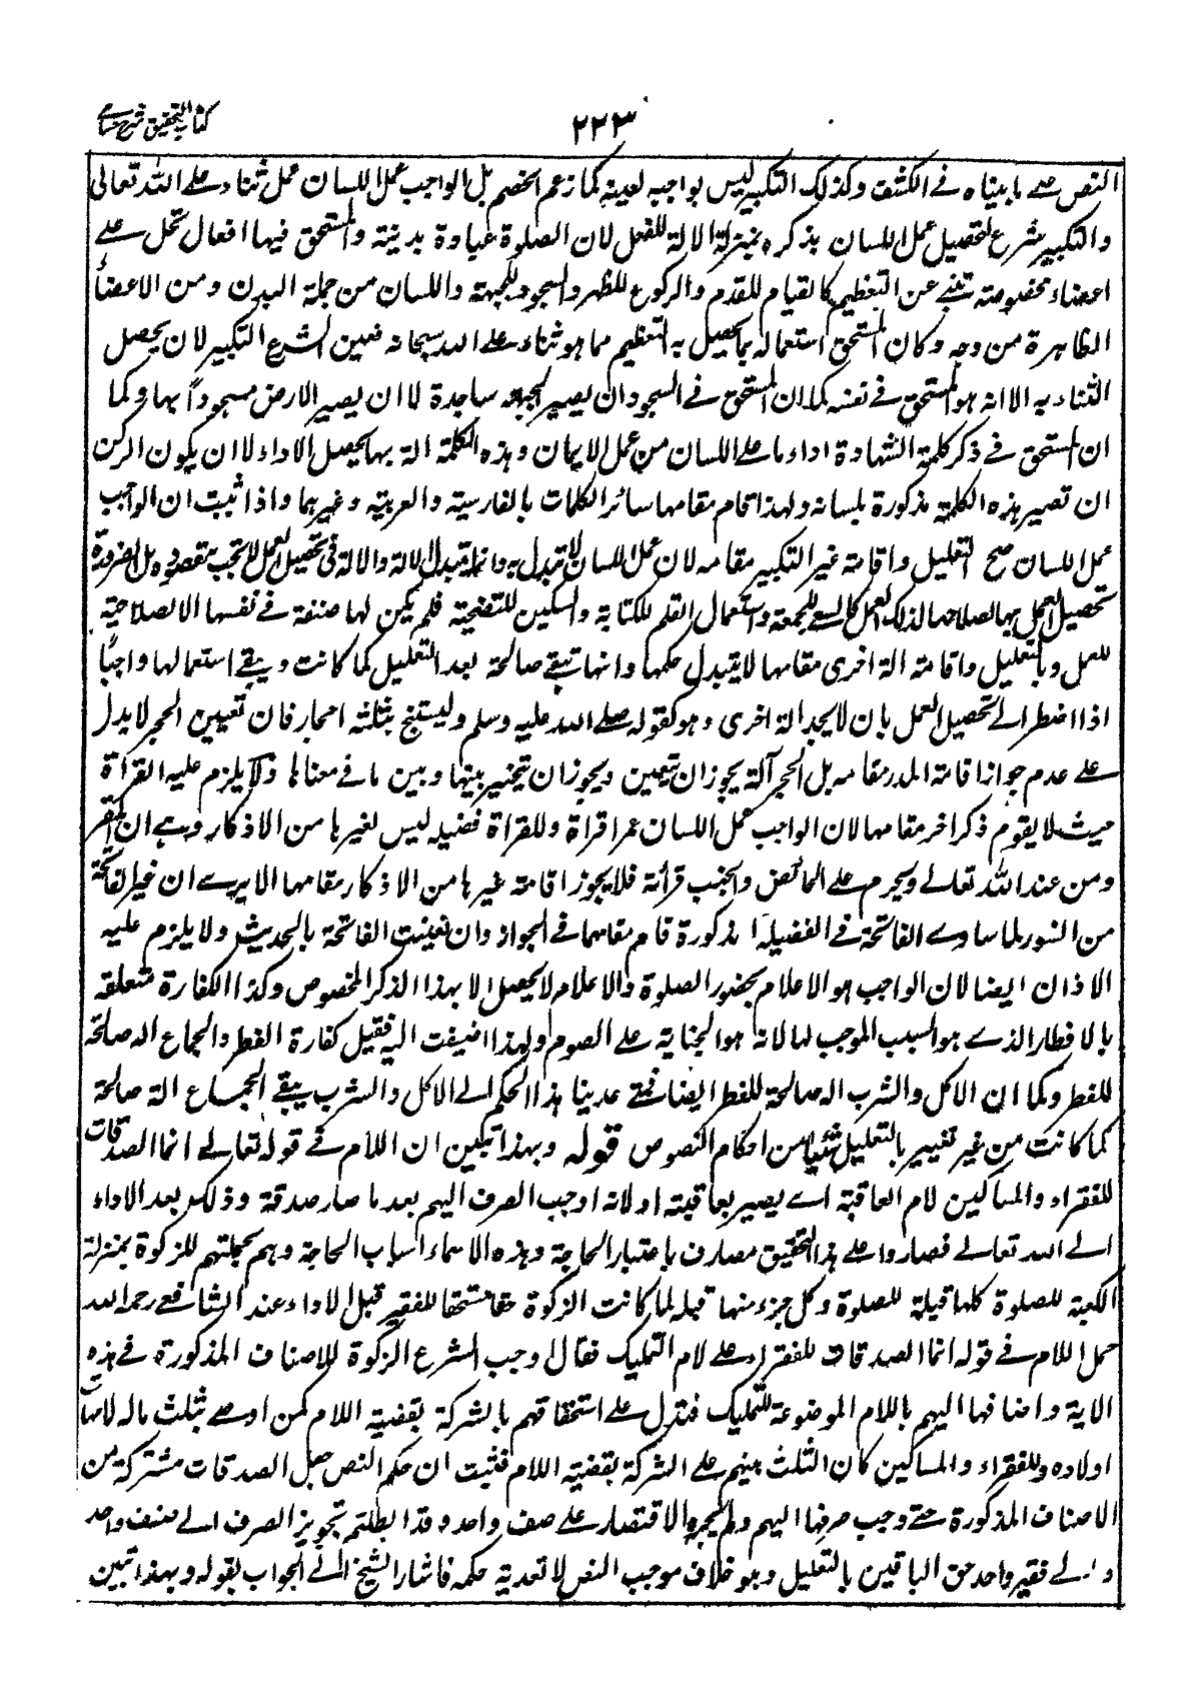 كتاب التحقيق شرح حسامي
٢٢٣
النص على ما بيناه في الكشف وكذلك التكبير ليس بواجب لعينه كما زعم الخصم بل الواجب عمل اللسان عمل ثناء على الله تعالى
والتكبير شرع لتحصيل عمل اللسان بذكره بمنزلة الالة للفعل لان الصلوة عبادة بدنية والمستحق فيها افعال تحل على
اعضاء مخصوصة تنبئ عن التعظيم كالقيام للقدم والركوع للظهر والسجود للجبهة واللسان من جملة البدن ومن الاعضاء
الظاهرة من وجه وكان المستحق استعماله بما يحصل به التعظيم مما هو ثناء على الله سبحانه فعين الشرع التكبير لان يحصل
الثناء به الا انه هو المستحق في نفسه كما ان المستحق في السجود ان يصير الجبهة ساجدة لا ان يصير الارض مسجودا بها وكما
ان المستحق في ذكر كلمة الشهادة اداء ما على اللسان من عمل الايمان وهذه الكلمة الة بها يحصل الاداء لا ان يكون الركن
ان تصير هذه الكلمة مذكورة بلسانه ولهذا قام مقامها سائر الكلمات بالفارسية والعربية وغيرهما واذا ثبت ان الواجب
عمل اللسان صح التعليل واقامة غير التكبير مقامه لان عمل اللسان لا يتبدل به وانما يتبدل الالة والالة في تحصيل العمل لا تجب مقصودة بل لضرورة
تحصيل العمل بها لصلاحها لذلك العمل كالسعي للجمعة واستعمال القلم للكتابة والسكين للتضحية فلم يكن لها صفة في نفسها الا صلاحية
للعمل وبالتعليل واقامة الة اخرى مقامها لا يتبدل حكمها وانها تبقى صالحة بعد التعليل كما كانت ويبقى استعمالها واجبًا
اذا اضطر الى تحصيل العمل بان لا يجد الة اخرى وهو كقوله صلى الله عليه وسلم وليستنج بثلثة احجار فان تعيين الحجر لا يدل
على عدم جواز اقامة المدر مقامه بل الحجر آلة يجوز ان يتعين ويجوز ان يتخير بينها وبين ما في معناها ولا يلزم عليه القراة
حيث لا يقوم ذكر اخر مقامها لان الواجب عمل اللسان قراة وللقراة فضيلة ليس لغيرها من الاذكار وهي ان المقر
ومن عند الله تعالى ويحرم على الحائض والجنب قرأته فلا يجوز اقامة غيرها من الاذكار مقامها الا يرى ان غير الفاتحة
من السور لما ساوى الفاتحة في الفضيلة المذكورة قام مقامها في الجواز وان تعينت الفاتحة بالحديث ولا يلزم عليه
الاذان ايضا لان الواجب هو الاعلام بحضور الصلوة والاعلام لا يحصل الا بهذا الذكر المخصوص وكذا الكفارة متعلقة
بالافطار الذي هو السبب الموجب لها لانه هو الجناية على الصوم ولهذا اضيفت اليه فقيل كفارة الفطر والجماع الة صالحة
للفطر وكما ان الاكل والشرب الة صالحة للفطر ايضا فمتى عدينا هذا الحكم الى الاكل والشرب يبقى الجماع الة صالحة
كما كانت من غير تغيير بالتعليل شيئا من احكام النصوص قوله وبهذا تبين ان اللام في قوله تعالى انما الصدقات
للفقراء والمساكين لام العاقبة اى يصير بعاقبته او لانه اوجب الصرف اليهم بعد ما صار صدقة وذلك بعد الاداء
الى الله تعالى فصاروا على هذا التحقيق مصارف باعتبار الحاجة وهذه الاسماء اسباب الحاجة وهم بجملتهم للزكوة بمنزلة
الكعبة للصلوة كلها قبلة للصلوة وكل جزء منها قبلة لما كانت الزكوة حقا مستحقا للفقير قبل الاداء عند الشافعي رحمه الله
حمل اللام في قوله انما الصدقات للفقراء على لام التمليك فقال اوجب الشرع الزكوة للاصناف المذكورة في هذه
الاية واضافها اليهم باللام الموضوعة للتمليك فتدل على استحقاقهم بالشركة بقضية اللام كمن اوصى بثلث ماله لامهات
اولاده وللفقراء والمساكين كان الثلث بينهم على الشركة بقضية اللام فثبت ان حكم النص جعل الصدقات مشتركة من
الاصناف المذكورة حتى وجب صرفها اليهم ولم يجز الاقتصار على صنف واحد وقد ابطلتم بتجويز الصرف الى صنف واحد
والى فقير واحد حق الباقين بالتعليل وهو خلاف موجب النص لا تعدية حكمه فاشار الشيخ الى الجواب بقوله وبهذا تبين